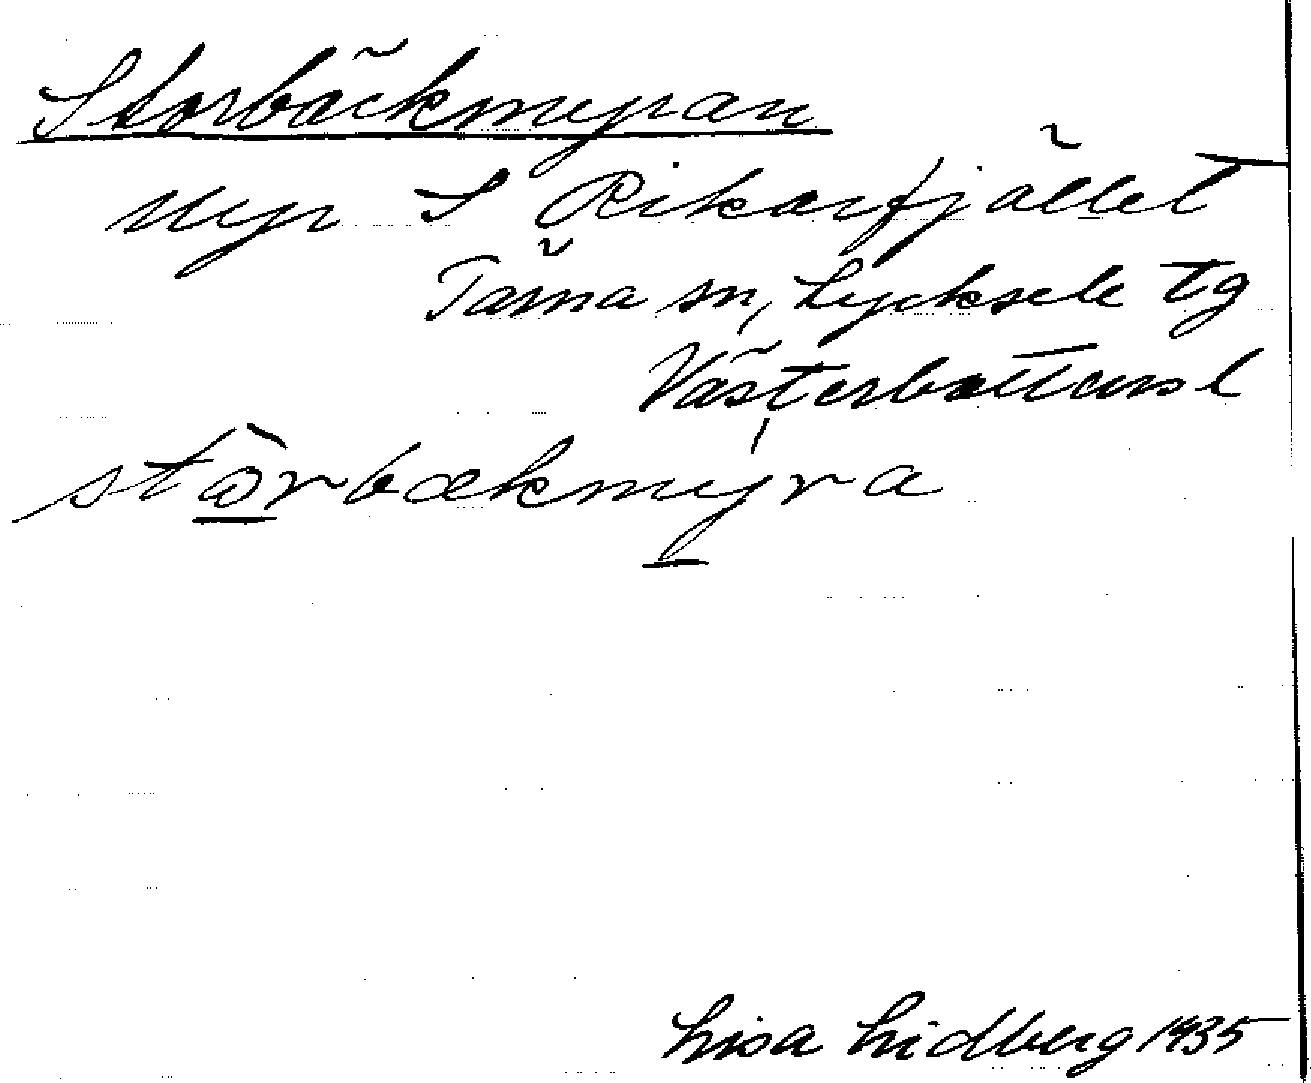 Storbäckmyran
myr S Rikarfjället
Tärna sn, Lycksele tg
Västerbottens l
stòrbækmy̍ra
Lisa Lidberg 1935